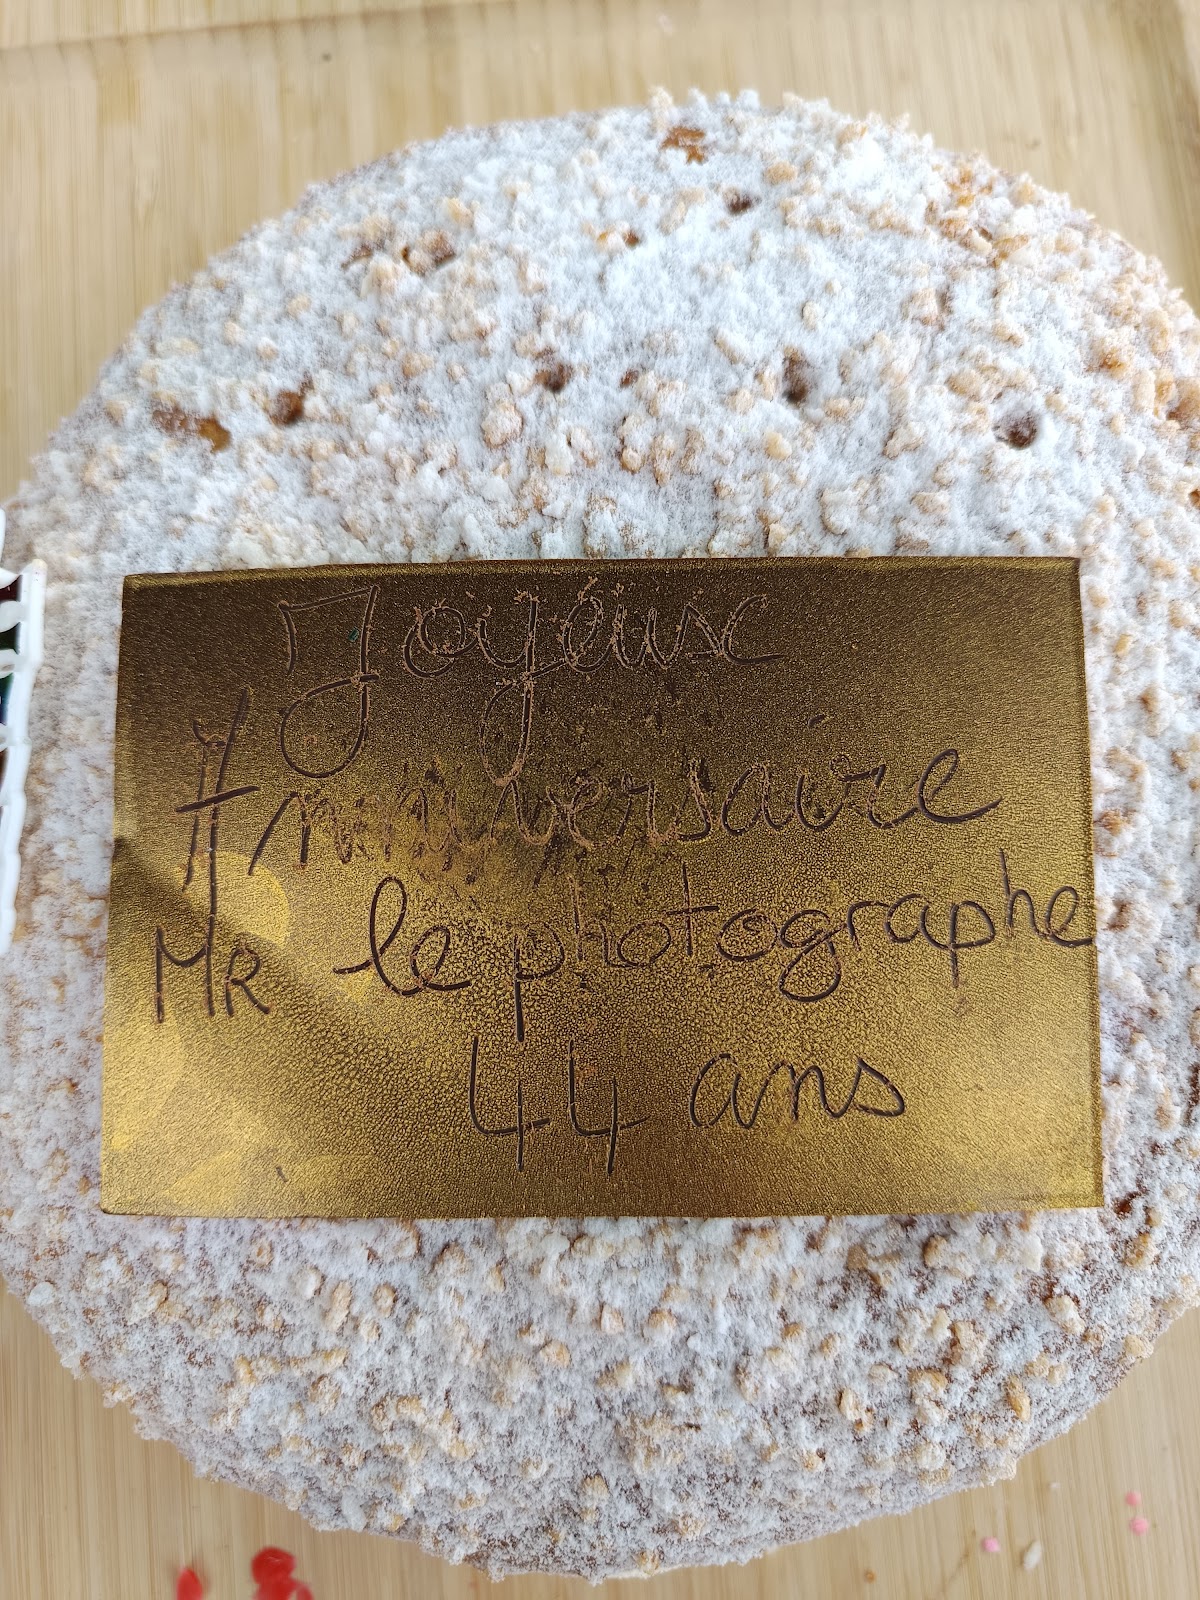 Joyeuse
Anniversaire
MR le photographe
44 ans